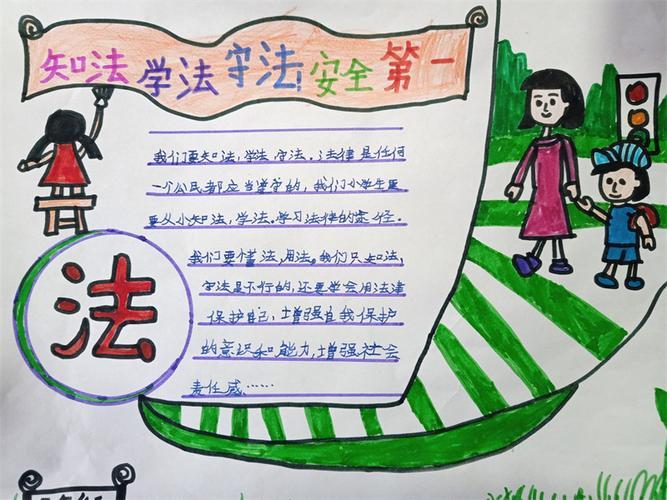 知法学法守法!安全第一
我们要知法,学法,守法,法律是任何
一个公民都应当遵守的,我们小学生更
要从小知法,学法.学习法律的途径.
我们要懂法,用法。我们只知法,
守法是不行的,还要学会用法律
保护自己,增强自我保护
的意识和能力,增强社会
责任感……
法